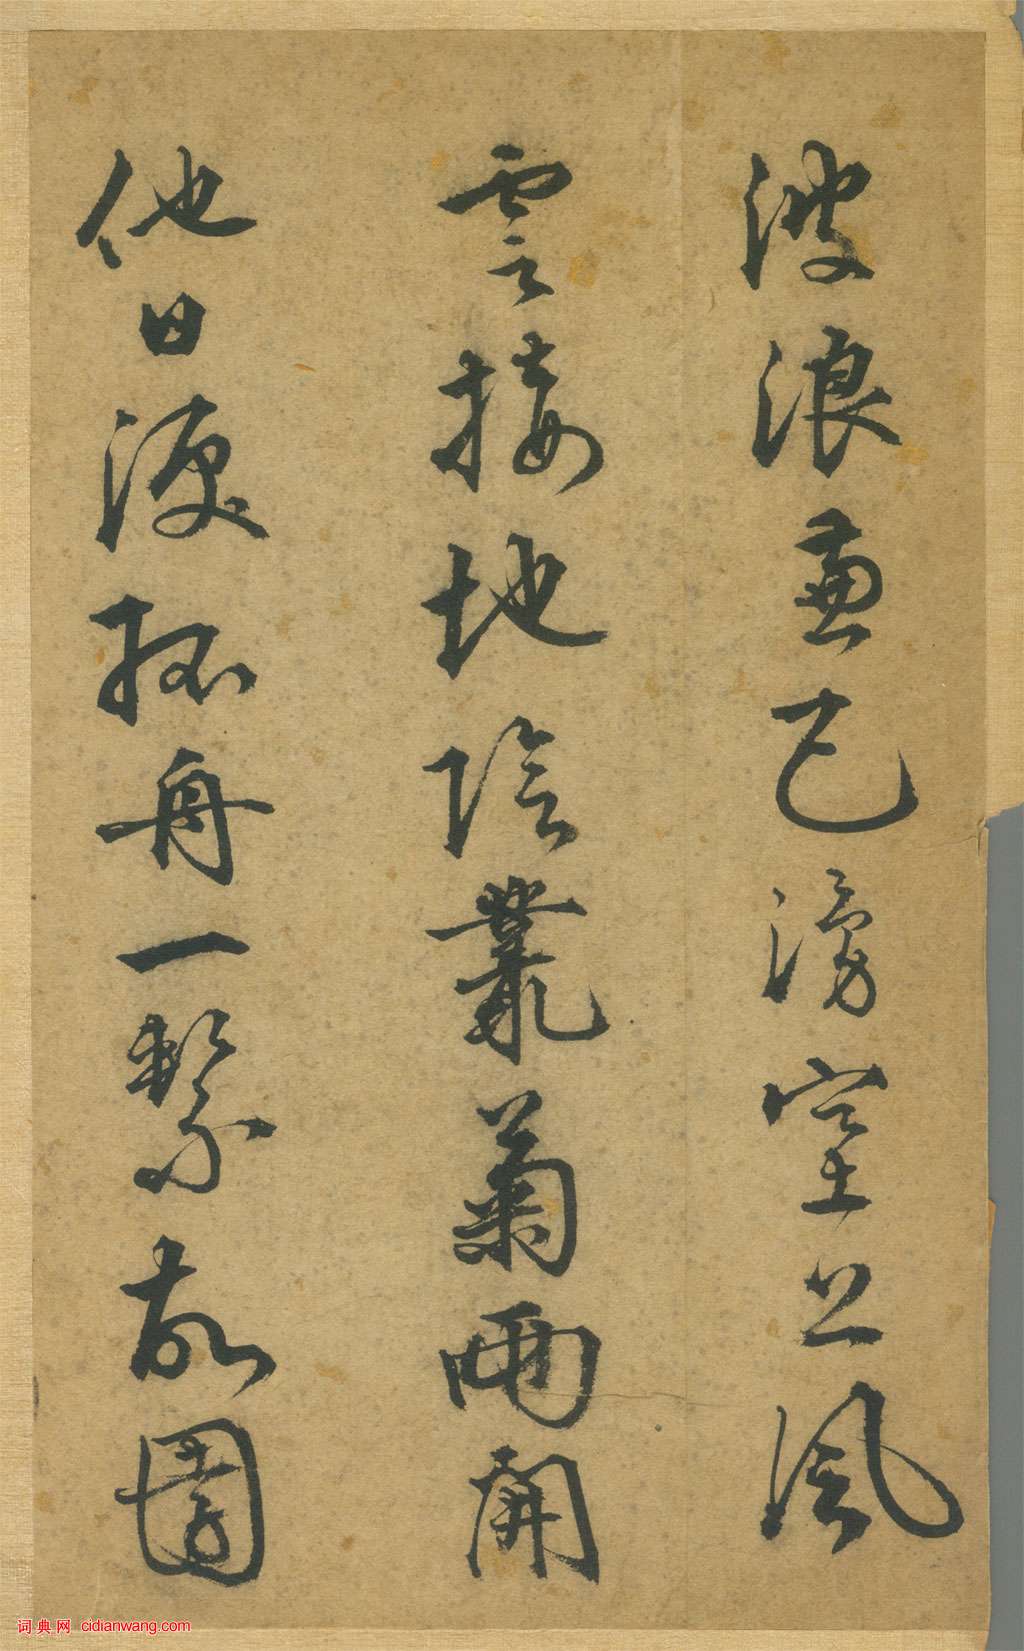 波浪兼天湧塞上風
雲接地陰叢菊兩開
他日淚孤舟一繫故園
词典网 cidianwang.com